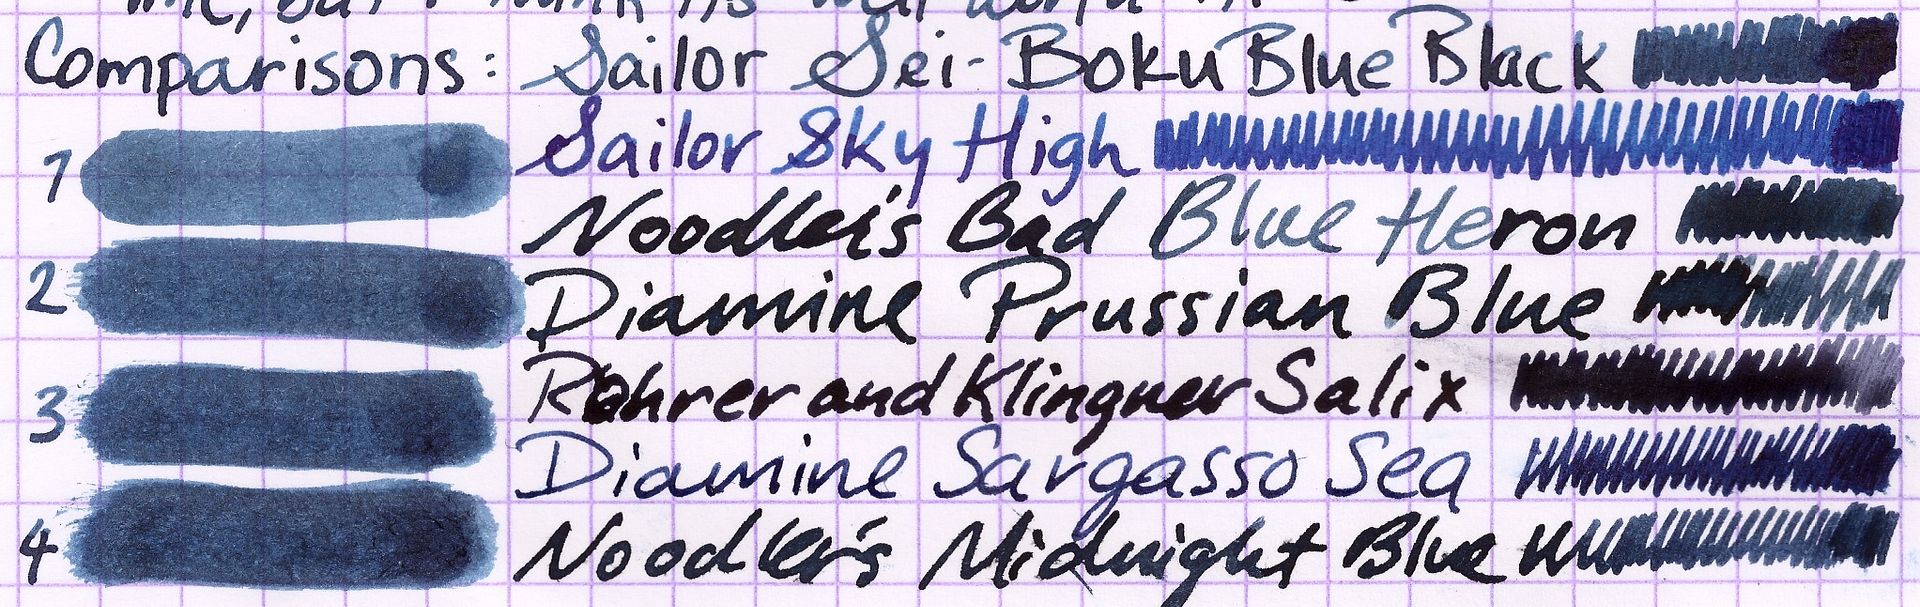 Comparisons: Sailor Sei-Boku Blue Black
1 Sailor Sky High
Noodler's Bad Blue Heron
2 Diamine Prussian Blue
3 Rohrer and Klingner Salix
Diamine Sargasso Sea
4 Noodler's Midnight Blue